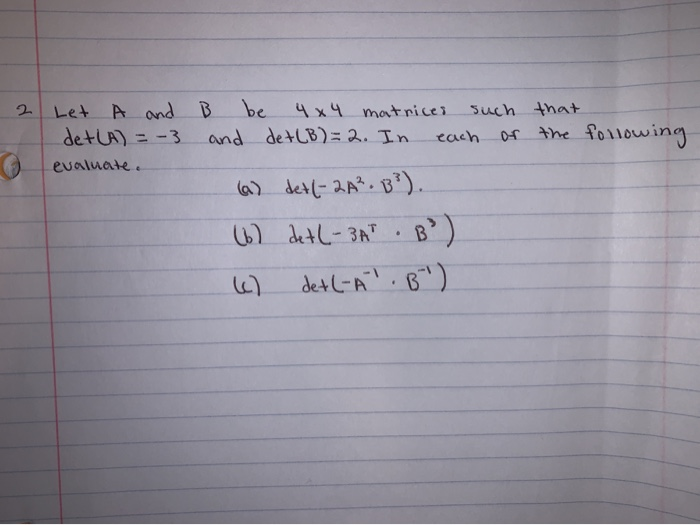 2 Let A and B be 4x4 matrices such that
det(A) = -3 and det(B)=2. In each of the following
evaluate.
(a) det(-2A²·B³).
(b) det(-3Aᵀ·B³)
(c) det(-A⁻¹·B⁻¹)